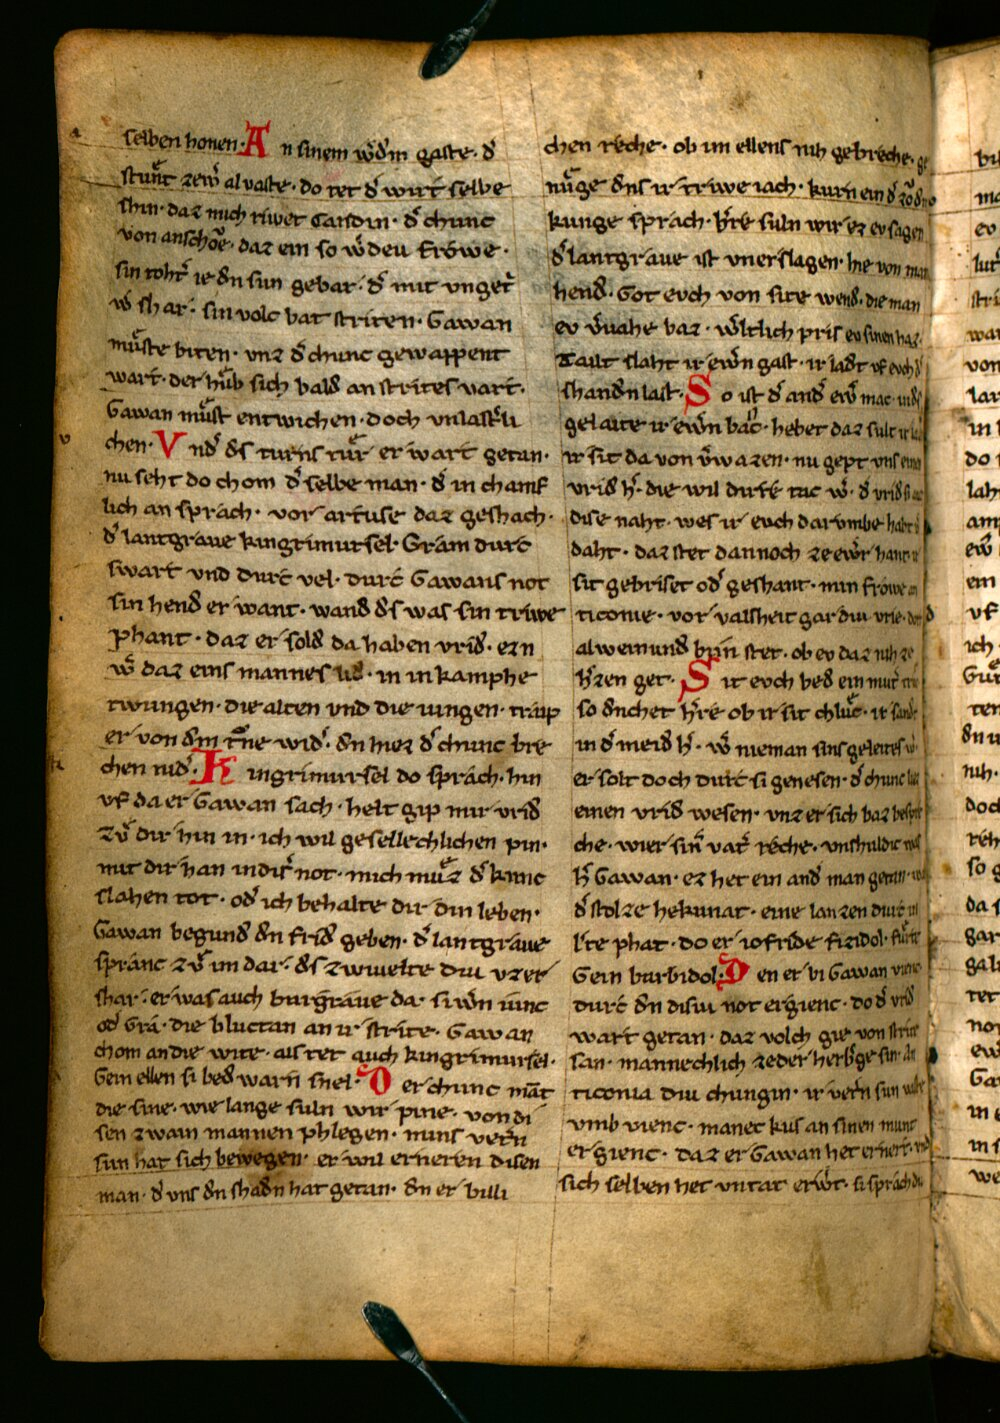 selben honen· A n sinem wͦdm gaste· dͦ
stunt zewͦ al vaste· do tet dͦ wirt selbe
shin· daz mich riwet Gandin· dͦ chunc
von anschoͮe· daz ein so wͦdeu froͮwe·
sin tohtͦ ie dͦn sun gebar· dͦ mit vngetͦ
wͦ shar· sin volc bat striten· Gawan
muͦste biten· vnz dͦ chunc gewappent
wart· der huͦb sich baldͦ an strites vart·
Gawan muͦst entwichen· doch vnlastͦli
chen· V ndͦ dͦs turns tuͦr er wart getan·
nu seht do chom dͦ selbe man· dͦ in chamf
lich an sprach· vor artuse daz geshach·
dͦ lantgrave kingrimursel· Gram durc
swart vnd durc vel· durc Gawans not
sin hendͦ er want· wandͦ dͦs was sin triwe
phant· daz er soldͦ da haben vridͦ· ezn
wͦ daz eins mannes lidͦ· in in kamphe
twungen· die alten vnd die iungen· traip
er von dͦm tͦne widͦ· dͦn hiez dͦ chunc bre
chen nidͦ· K ingrimursel do sprach· hin
vf da er Gawan sach· helt gip mir vridͦ
zuͦ dir hin in· ich wil gesellechlichen pin·
mit dir han in dirͦ not· mich muͦz dͦ kunc
slahen tot· odͦ ich behalte dir din leben·
Gawan begundͦ dͦn fridͦ geben· dͦ lantgrave
spranc zuͦ im dar· dͦs zwivelte diu vzer
shar· er was auch burgrave da· si wͦn iunc
odͦ Gra· die bluctan an ir strite· Gawan
chom an die wite· als tet auch kingrimursel·
Gein ellen si bedͦ warn snel· D er chunc mant
die sine· wie lange suln wir pine· von di
sen zwain mannen phlegen· mins vetͦn
sun hat sich bewegen· er wil erneren disen
man· dͦ vns dͦn shadͦn hat getan· dͦn er billi
chen reche· ob im ellens niht gebreche· ge
nuͦge dͦns ir triwe iach· kurn ein dͦ zoͮ dͦm
kunge sprach· hͦre suln wir ez ev sagen
dͦ lantgrave ist vnerslagen· hie von man
hendͦ· Got evch von site wendͦ· die man
ev vͦvahe baz· wͦltlich pris ev sinen haz·
tailt slaht ir ewͦn gast· ir ladͦt vf evch dͦ
shandͦn last· S o ist dͦ andͦ ewͦ mac· in dͦs
gelaite ir ewͦn bac· hebet daz sult ir
ir sit da von vͦwazen· nu gept vns einen
vridͦ hͦ· die wil durfe tac wͦ· dͦ vridͦ si ac
dise naht· wes ir evch darumbe habt dͦ
daht· daz stet dannoch ze ewͦr hant· ir
sit gebriset odͦ geshant· min frowe an
ticonie· vor valsheit gar diu vrie· dort
al weinundͦ bi in stet· ob ev daz niht ze
hͦzen get· S it evch bedͦ ein mutͦ
so dͦnchet hͦre ob ir sit chluc· ir sandͦ
in dͦ meidͦ hͦ· wͦ nieman sins geleites
er solt doch durc si genesen· dͦ chunc liez
einen vridͦ wesen· vnz er sich baz bespre
che· wier sinͦ vatͦ reche· vnshuldic was
hͦ Gawan· ez het ein andͦ man getan·
dͦ stolze hekunat· eine lanzen durc in
lͦte phat· do er iofride fizidol· fuͦrte
Gein barbidol· D en er bi Gawan vienc
durc dͦn disiu not ergienc· do dͦ vridͦ
wart getan· daz volch gie von strite
san· mannechlich ze der herbͦge sin· An
ticonia diu chungin· ir vetͦrn sun
vmb vienc· manec kus an sinen munt
ergienc· daz er Gawan het ernert· vnd
sich selben het vntat erwͦt· si sprach du